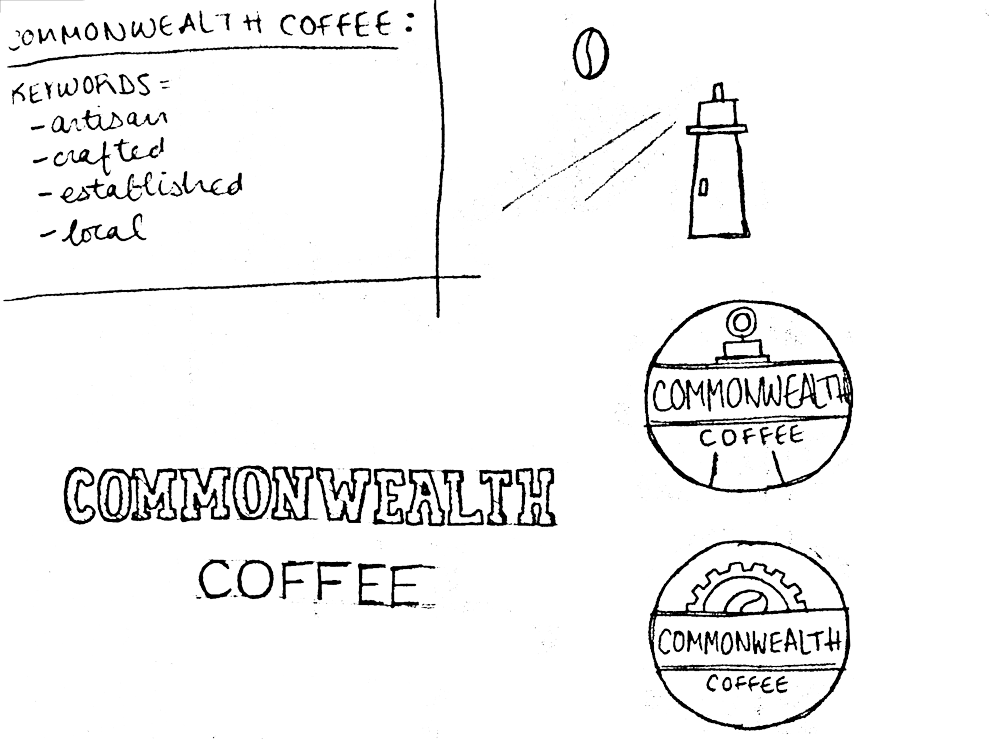 COMMONWEALTH COFFEE:
KEYWORDS =
- artisan
- crafted
- established
- local
COMMONWEALTH
COFFEE
COMMONWEALTH
COFFEE
COMMONWEALTH
COFFEE